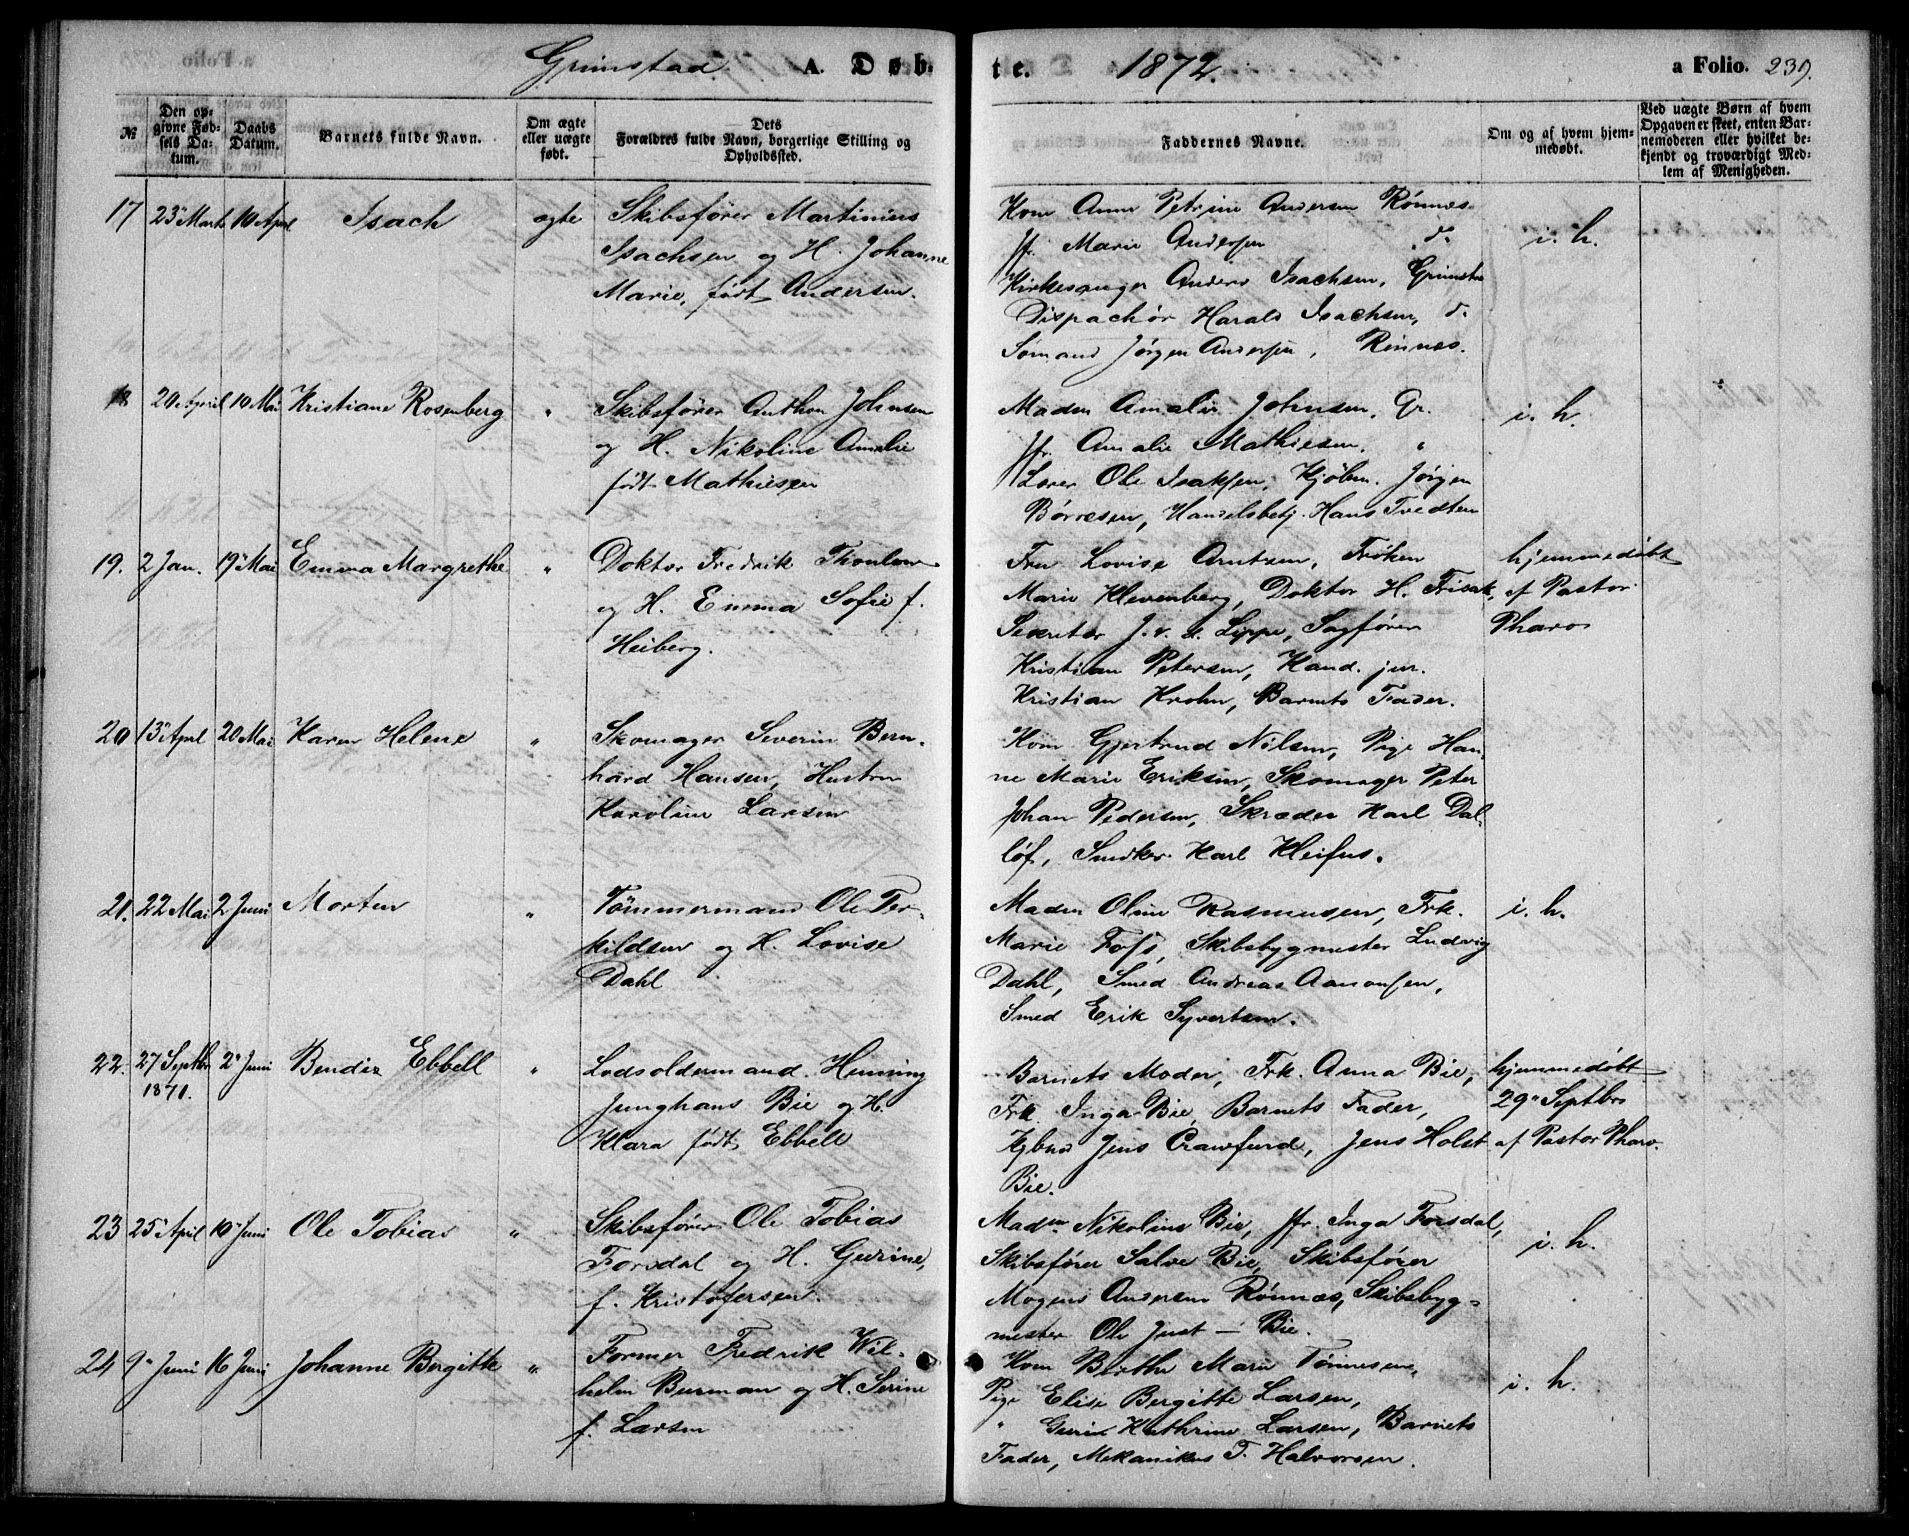 Grimstad A. Døb-
te. 1872. a Folio. 239.
№ Den op-
givne Fød-
sels Da-
tum.
Daabs
Datum.
Barnets fulde Navn.
Om ægte
eller uægte
født.
Dets
Forældres fulde Navn, borgerlige Stilling og
Opholdssted.
Faddernes Navne.
Om og af hvem hjem-
medøbt.
Ved uægte Børn af hvem
Opgaven er skeet, enten Bar-
nemoderen eller hvilket be-
kjendt og troværdigt Med-
lem af Menigheden.
17 23 Marts 10 April Isach ægte Skibsfører Martinius
Isachsen og H. Johanne
Marie, født Andersen.
Kone Anne Petrine Andersen Rønnes
Jfr. Marie Andersen do
Kirkesanger Anders Isachsen, Grimstad
Dispachør Harald Isachsen, do
Sømand Jørgen Andersen, Rønnes.
i. h.
18 20 April 10 Mai Kristiane Rosenberg " Skibsfører Anthon Johnsen
og H. Nikoline Amalie
født Mathiesen
Madm Amalie Johnsen, Gr.
Jfr. Amalie Mathiesen, "
Lærer Ole Isaksen, Kjøbm. Jørgen
Børresen, Handelsbetj. Hans Tvedten
i. h.
19. 2 Jan. 19 Mai Emma Margrethe " Doktor Fredrik Thonlow
og H. Emma Sofie f.
Heiberg.
Fru Lovise Arntzen, Frøken
Marie Klevenberg, Doktor H. Frisak,
Sekretær J. v. d. Lippe, Sagfører
Kristian Petersen, Kand. jur.
Kristian Krohn, Barnets Fader.
hjemmedøbt
af Pastor
Pharo
20 13 April 20 Mai Karen Helene " Skomager Severin Bern-
hard Hansen, Hustru
Karoline Larsen
Kone Gjertrud Nilsen, Pige Han-
ne Marie Eriksen, Skomager Peter
Johan Pedersen, Skræder Karl Dal-
løf, Snedker Karl Kleifus.
21. 22 Mai 2 Juni Morten " Tømmermand Ole Ter-
kildsen og H. Lovise
Dahl
Madm Oline Rasmussen, Frk.
Marie Foss, Skibsbygmester Ludvig
Dahl, Smed Andreas Aanonsen,
Smed Erik Syvertsen.
i. h.
22. 27 Septbr
1871. 2 Juni Bendix Ebbell " Lodsoldermand Henning
Junghans Bie og H.
Klara født Ebbell
Barnets Moder, Frk. Anna Bie,
Frk. Inga Bie, Barnets Fader,
Kjbmd Jens Crawfurd, Jens Holst
Bie.
hjemmedøbt
29 Septbr
af Pastor Pharo.
23 25 April 10 Juni Ole Tobias " Skibsfører Ole Tobias
Forsdal og H. Gurine,
f. Kristofersen.
Madm. Nikoline Bie, Jfr. Inga Forsdal,
Skibsfører Salve Bie, Skibsfører
Mogens Andersen Rønnes, Skibsbyg-
mester Ole Just Bie.
i. h.
24 9 Juni 16 Juni Johanne Bergitte " Former Fredrik Wil-
helm Burman og H. Serine
f. Larsen
Kone Birthe Marie Tønnesen,
Pige Elise Bergitte Larsen,
" Gurine Kathrine Larsen, Barnets
Fader, Mekanikus T. Halvorsen.
i. h.